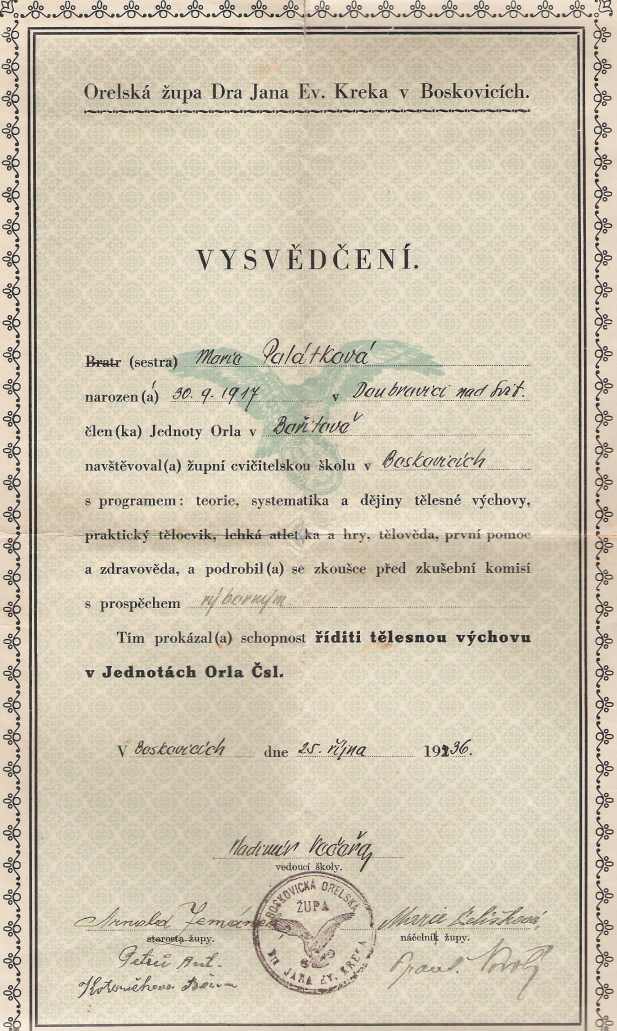 Orelská župa Dra Jana Ev. Kreka v Boskovicích.
VYSVĚDČENÍ.
Bratr (sestra) Marie Palátková
narozen(á) 30. 9. 1917 v Doubravici nad Svit.
člen(ka) Jednoty Orla v Bořitově
navštěvoval(a) župní cvičitelskou školu v Boskovicích
s programem: teorie, systematika a dějiny tělesné výchovy,
praktický tělocvik, lehká atletika a hry, tělověda, první pomoc
a zdravověda, a podrobil(a) se zkoušce před zkušební komisí
s prospěchem výborným
Tím prokázal(a) schopnost říditi tělesnou výchovu
v Jednotách Orla Čsl.
V Boskovicích dne 25. října 1936.
Vladimír
vedoucí školy.
BOSKOVICKÁ ORELSKÁ
ŽUPA
Dra JANA EV. KREKA
Arnold Zeman Marie
starosta župy. náčelník župy.
Petrů Ant.